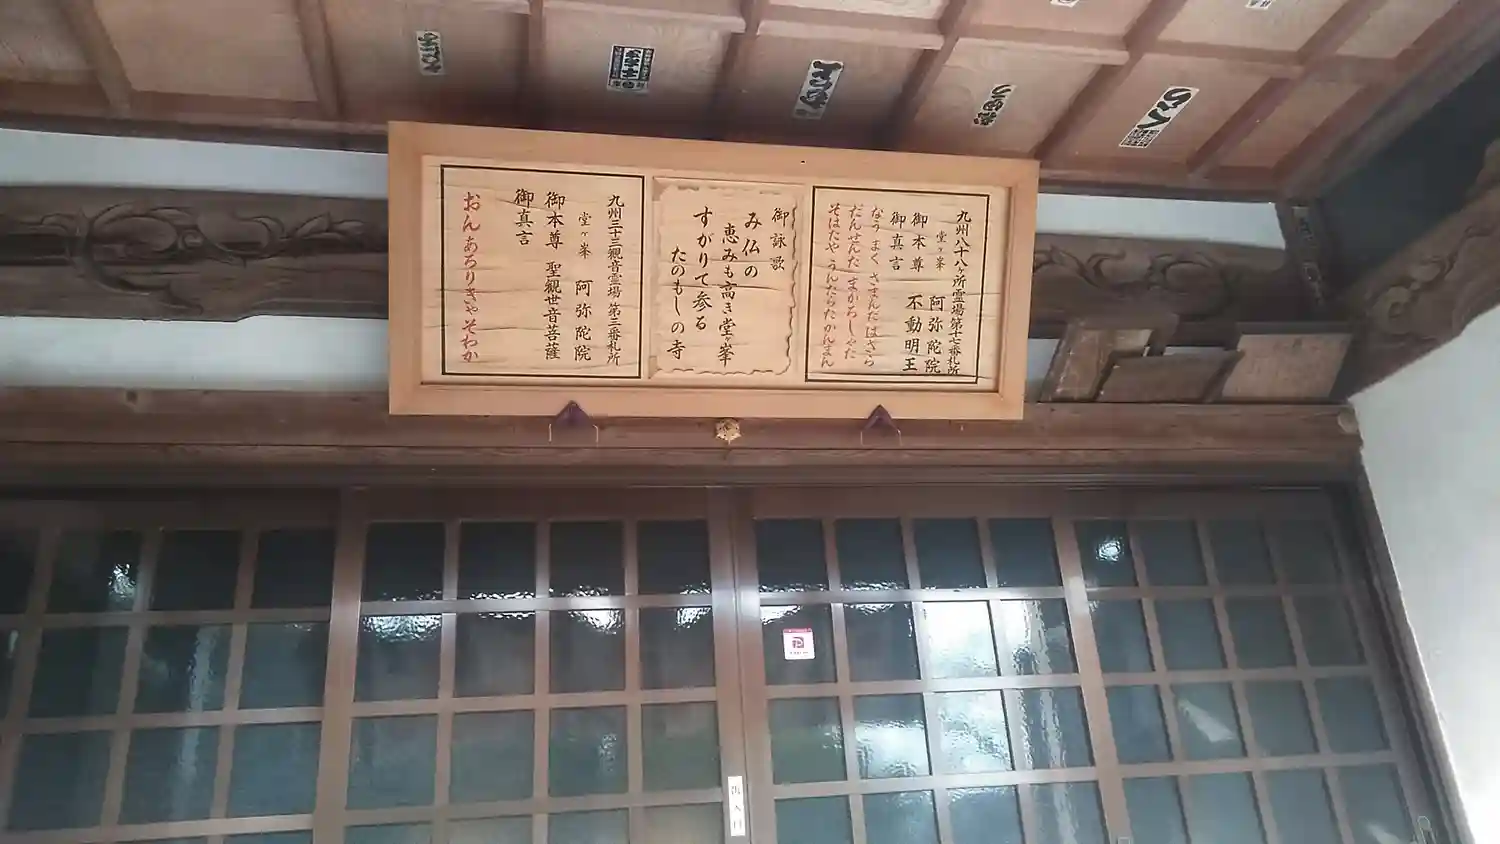 九州八十八ヶ所霊場第十七番札所
堂ヶ峯 阿弥陀院
御本尊 不動明王
御真言
なうまく さまんだばざら
だんせんだ まかろしゃた
そはたや うんたらたかんまん
御詠歌
み仏の
恵みも高き堂ヶ峯
すがりて参る
たのもしの寺
九州三十三観音霊場 第三番札所
堂ヶ峯 阿弥陀院
御本尊 聖観世音菩薩
御真言
おんあろりきゃそわか
出入口